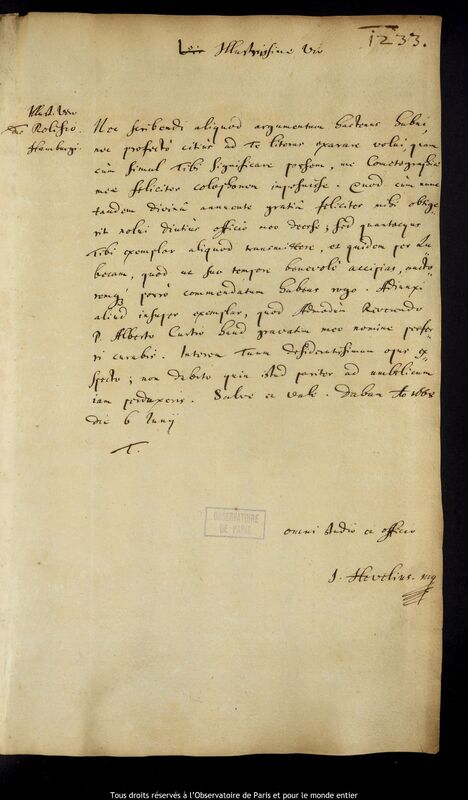 1233.
Illustrissime Vir
Illust. Viro
Rolichio.
Hamburgi.
Nec scribendi aliquod argumentum hactenus habui,
nec profectò citius ad Te literas exarare volui, quam
cùm simul Tibi significare possem, me Cometographiæ
meæ feliciter colophonem imposuisse. Quod cùm nunc
tandem divinâ annuente gratiâ feliciter mihi obtige-
rit nolui diutius officio meo deesse; sed quantocyus
Tibi exemplar aliquod transmittere, et quidem per Lu-
becam, quod ut suo tempore benevolè accipias, aucto-
remq; porrò commendatum habeas rogo. Adiunxi
aliud insuper exemplar, quod Admodum Reverendo
P. Alberto Curtio haud gravatim meo nomine perfer-
ri curabis. Interea Tuum desideratissimum opus ex-
specto; non dubito quin istud pariter ad umbilicum
iam perduxeris. Salve et vale. Dabam Ao 1668
die 6 Iunij
T.
OBSERVATOIRE
DE PARIS
omni studio et officio
J. Hevelius. mp
Tous droits réservés à l'Observatoire de Paris et pour le monde entier